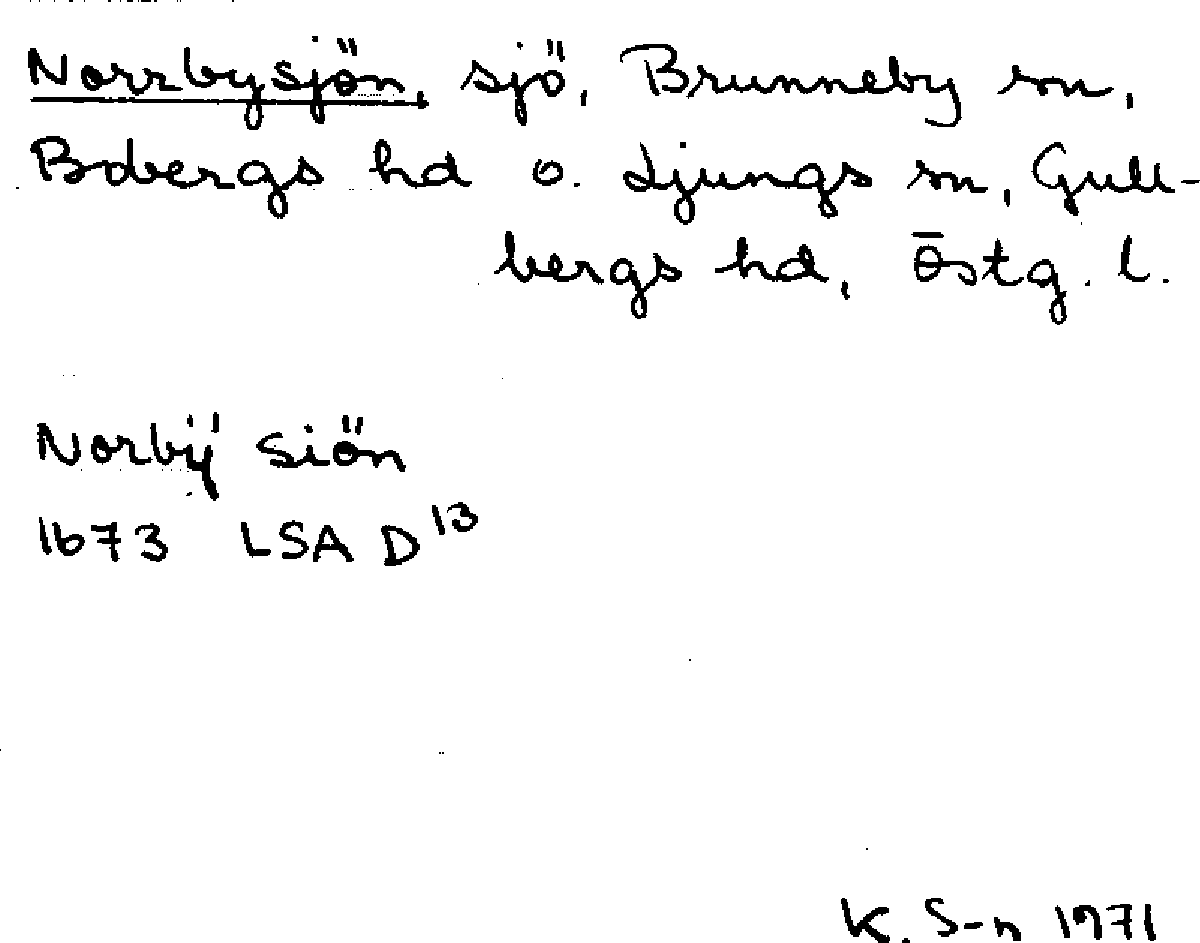 Norrbysjön, sjö, Brunneby sn,
Bobergs hd o. Ljungs sn, Gull-
bergs hd, Östg. l.
Norbÿ Siön
1673 LSA D13
K. S-n 1971